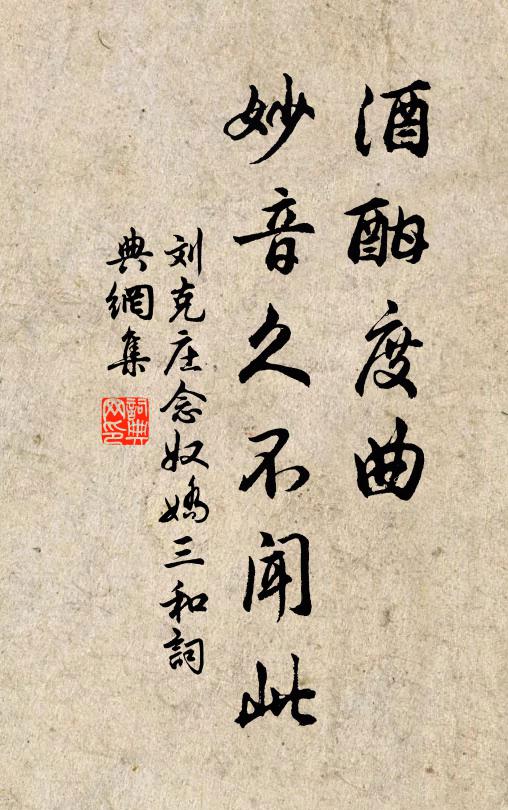 酒酣度曲
妙音久不闻此
刘克庄念奴嬌三和詞
典網集
詞典網印